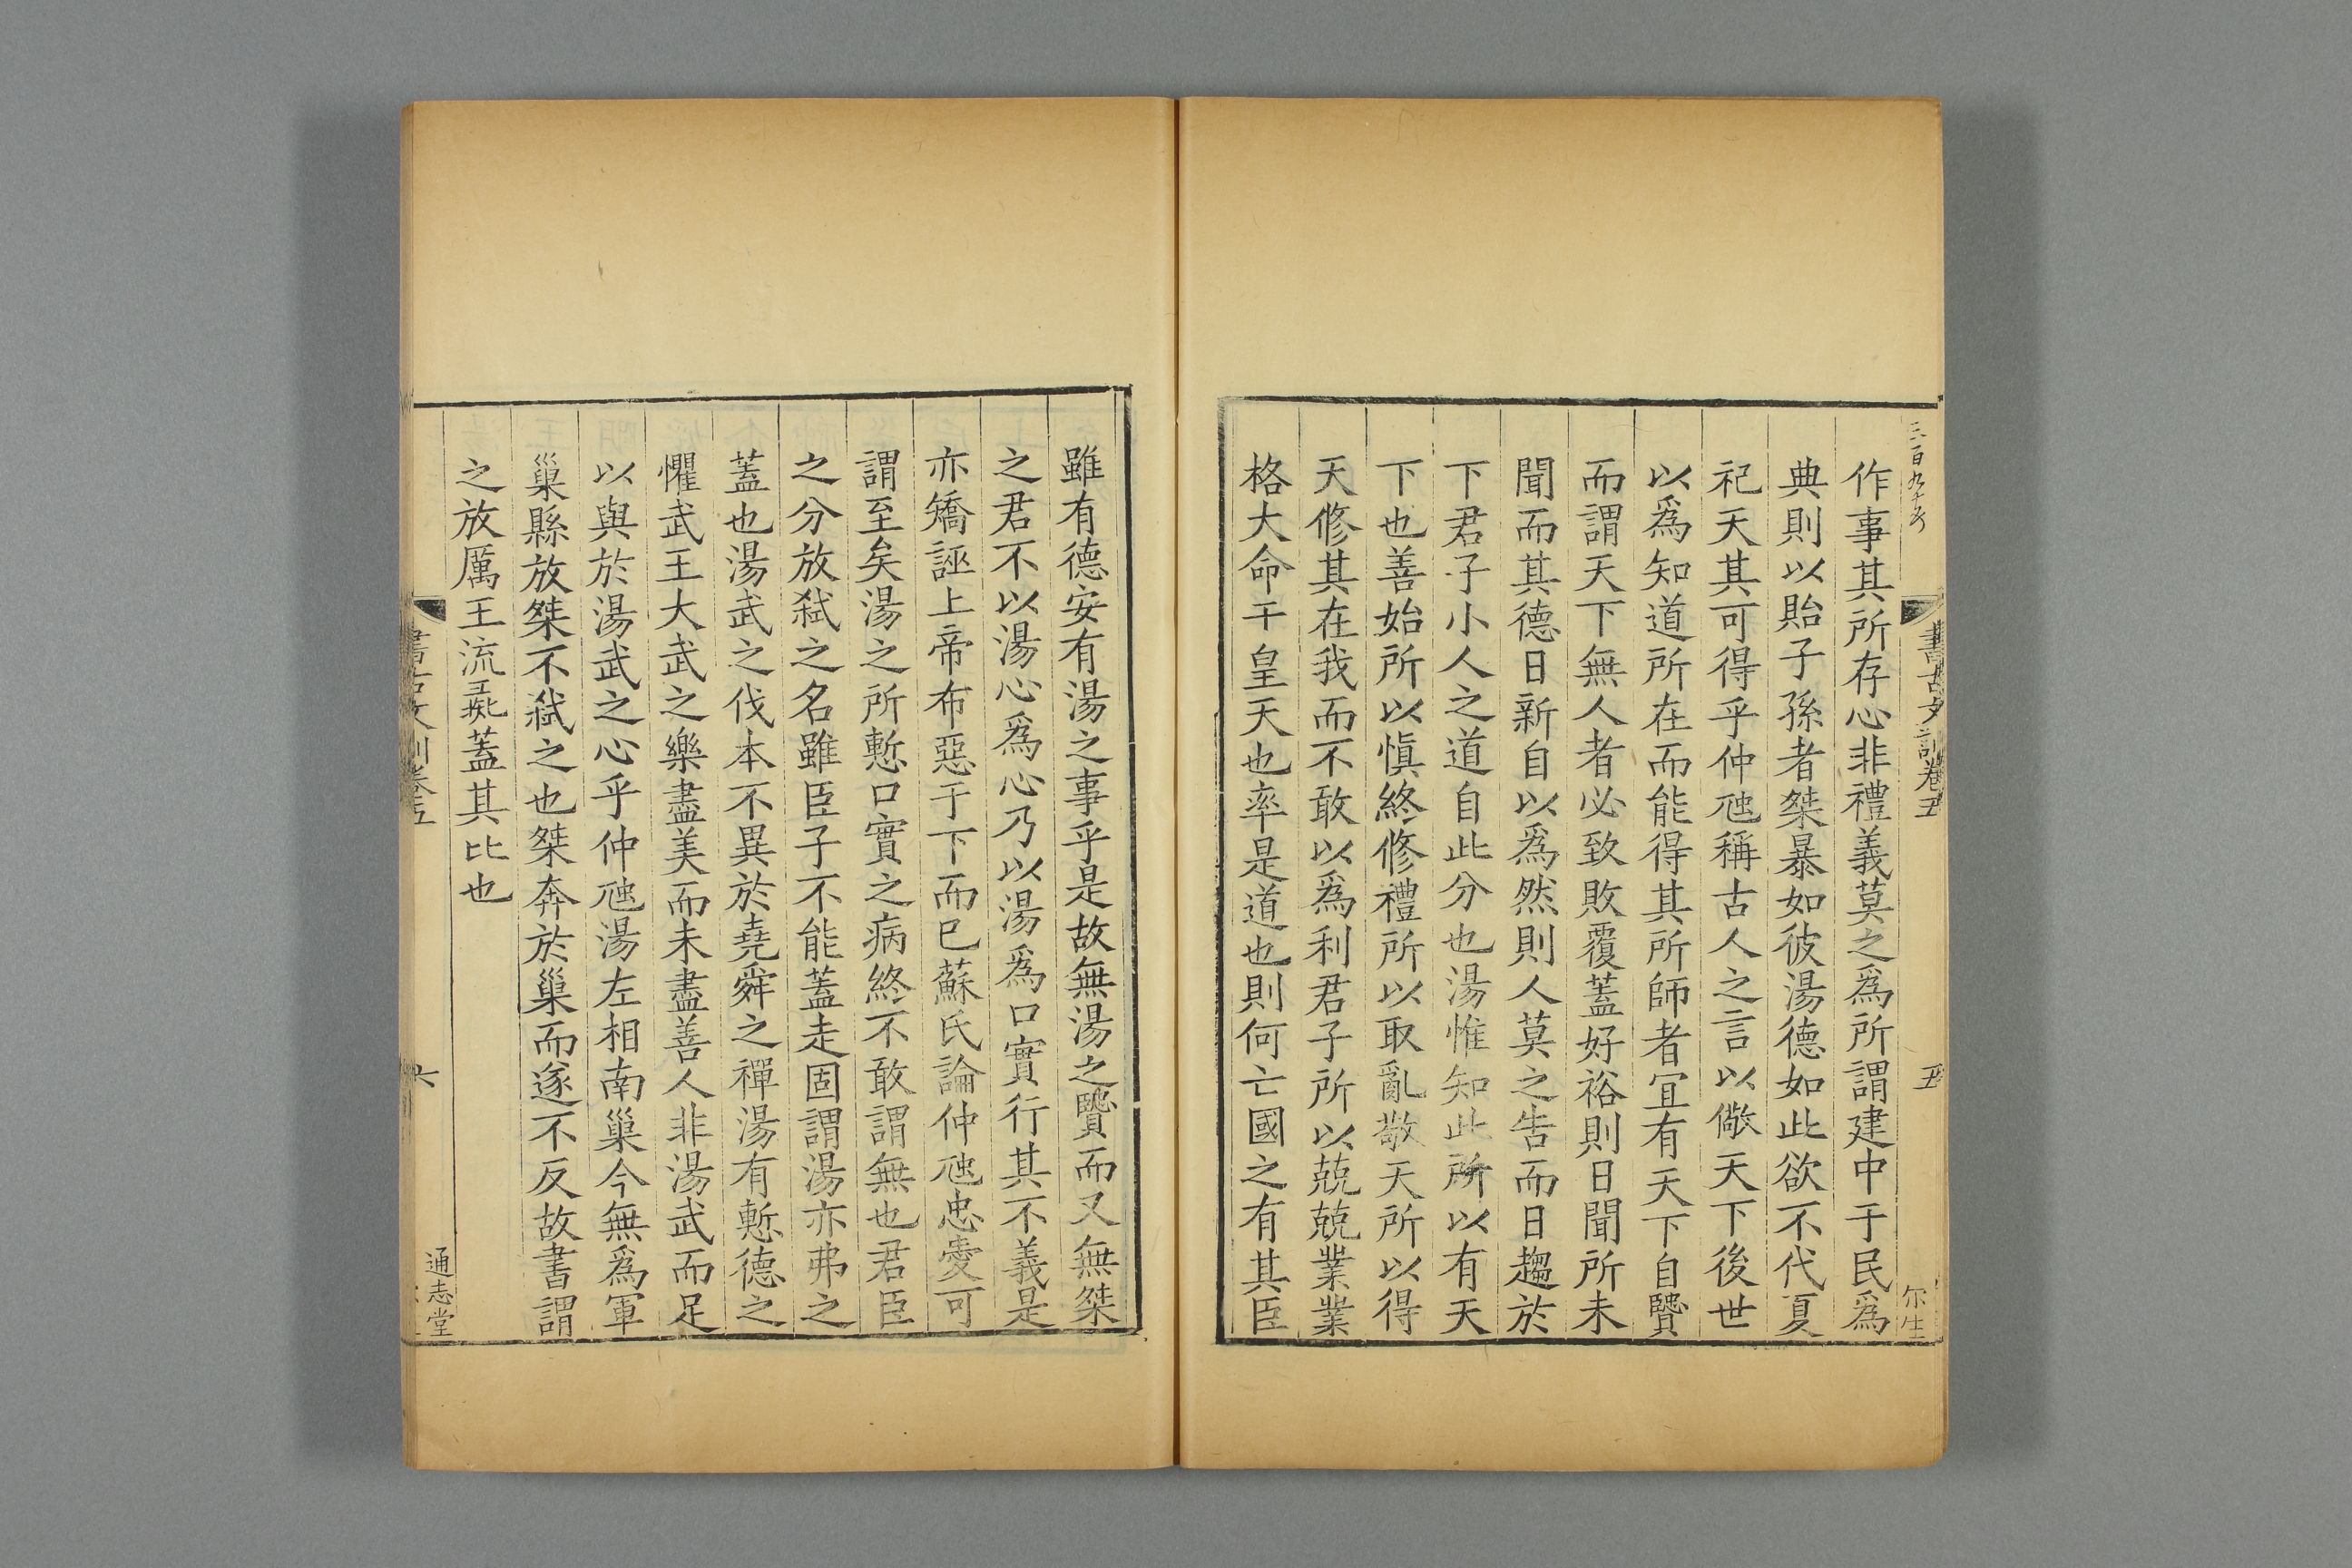 書古文訓卷五
五
作事其所存心非禮義莫之爲所謂建中于民爲
典則以貽子孫者桀暴如彼湯德如此欲不代夏
祀天其可得乎仲虺稱古人之言以儆天下後世
以爲知道所在而能得其所師者宜有天下自賢
而謂天下無人者必致敗覆蓋好裕則日聞所未
聞而其德日新自以爲然則人莫之告而日趨於
下君子小人之道自此分也湯惟知此所以有天
下也善始所以慎終修禮所以取亂敬天所以得
天修其在我而不敢以爲利君子所以兢兢業業
格大命于皇天也率是道也則何亡國之有其臣
雖有德安有湯之事乎是故無湯之賢而又無桀
之君不以湯心爲心乃以湯爲口實行其不義是
亦矯誣上帝布惡于下而已蘇氏論仲虺忠愛可
謂至矣湯之所慙口實之病終不敢謂無也君臣
之分放弒之名雖臣子不能蓋走固謂湯亦弗之
蓋也湯武之伐本不異於堯舜之禪湯有慙德之
懼武王大武之樂盡美而未盡善人非湯武而足
以與於湯武之心乎仲虺湯左相南巢今無爲軍
巢縣放桀不弒之也桀奔於巢而遂不反故書謂
之放厲王流彘蓋其比也
書古文訓卷五
六
通志堂